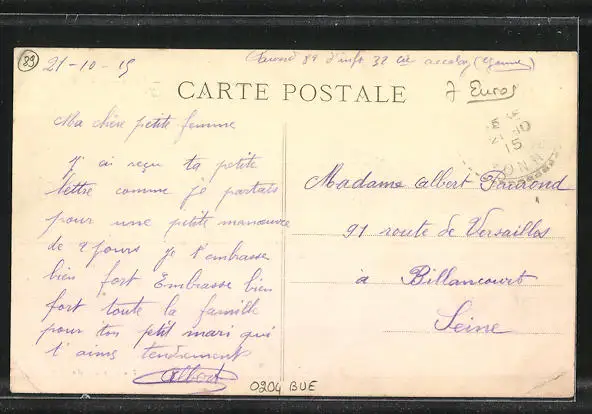 89
21-10-15
89 d'inf 32 cie accolay (Yonne)
CARTE POSTALE
7 Euros
10
15
YONNE
Ma chère petite femme
J'ai reçu ta petite
lettre comme je partais
pour une petite manœuvre
de 2 jours je t'embrasse
bien fort Embrasse bien
fort toute la famille
pour ton petit mari qui
t'aime tendrement
Albert
Madame Albert
91 route de Versailles
à Billancourt
Seine
0204 BUE